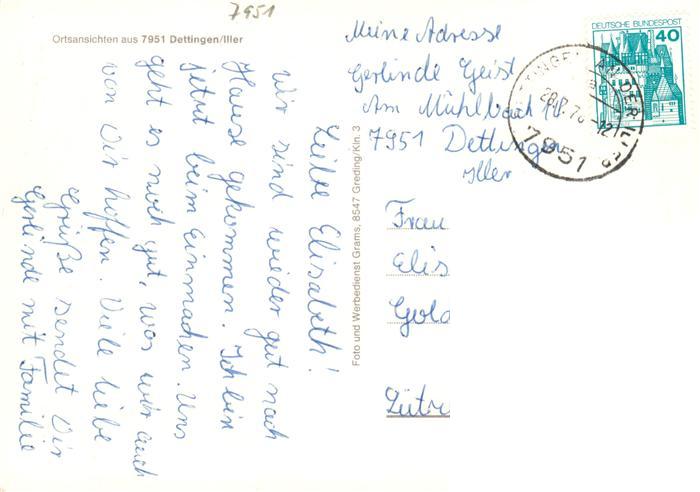 7951
Ortsansichten aus 7951 Dettingen/Iller
Liebe Elisabeth!
Wir sind wieder gut nach
Hause gekommen. Ich bin
jetzt beim Einmachen. Uns
geht es noch gut, was wir auch
von Dir hoffen. Viele liebe
Grüße sendet Dir
Gerlinde mit Familie
Foto und Werbedienst Grams, 8547 Greding/Kin. 3
Meine Adresse
Gerlinde Geist
Am Mühlbach
7951 Dettingen
Iller
DEUTSCHE BUNDESPOST
40
AN DER ILLER
7951
Frau
Elis
Gold